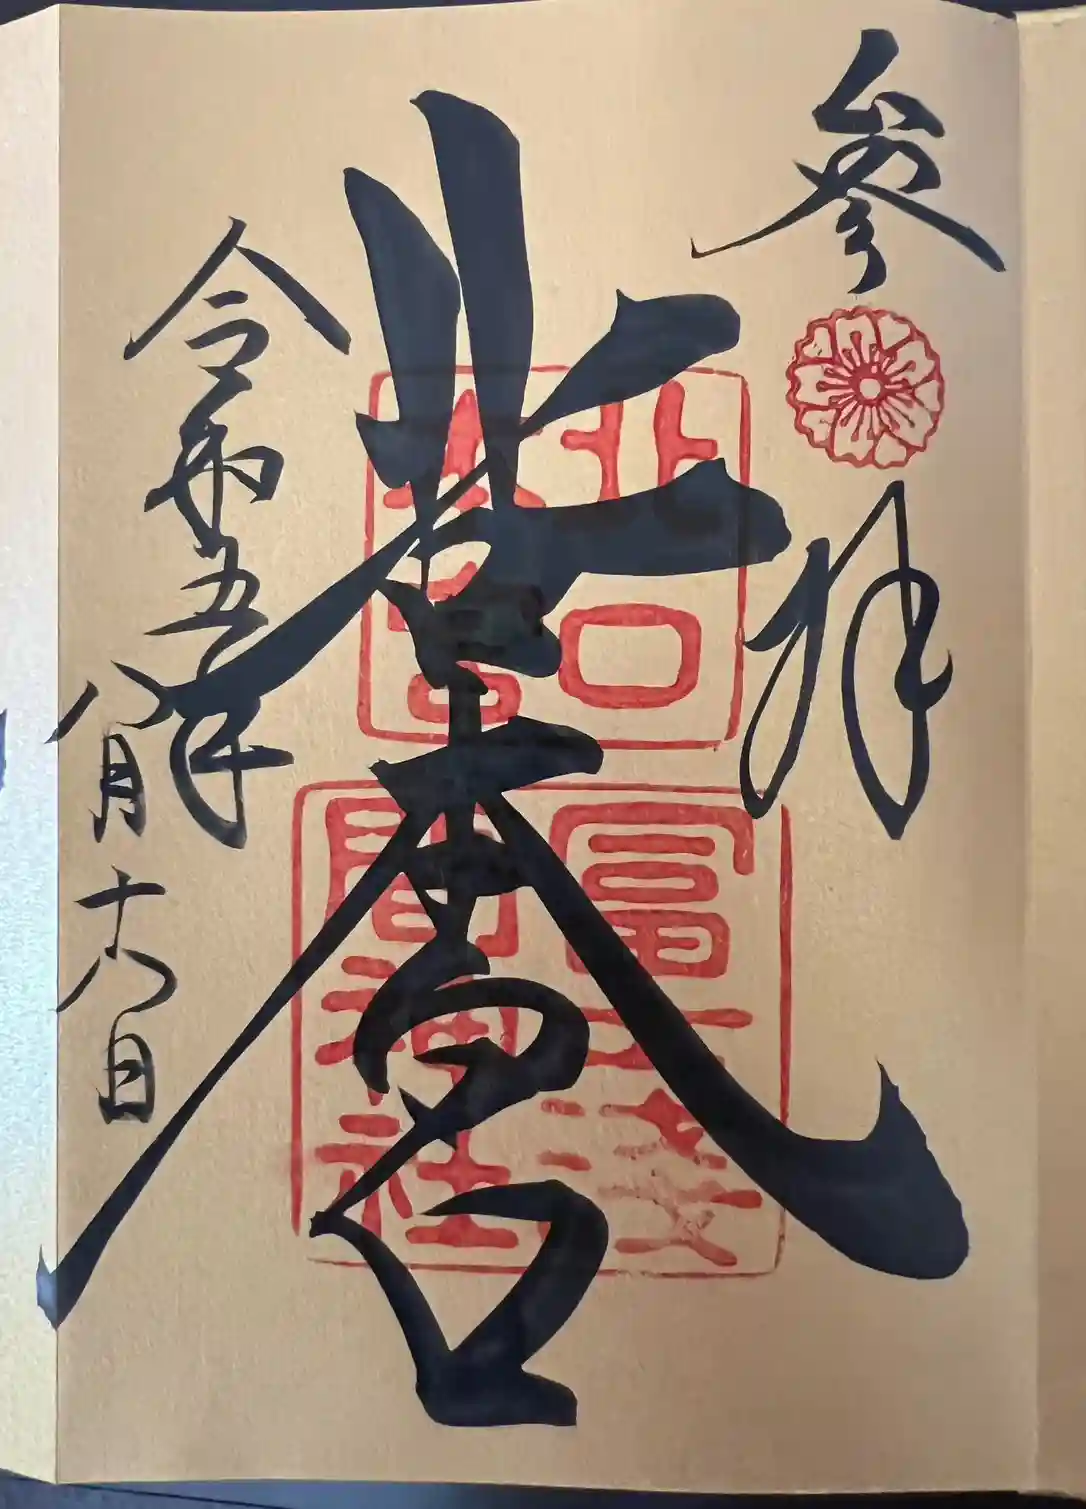 参拝
北口本宮
北口
本宮
冨士淺
間神社
令和五年
八月十六日